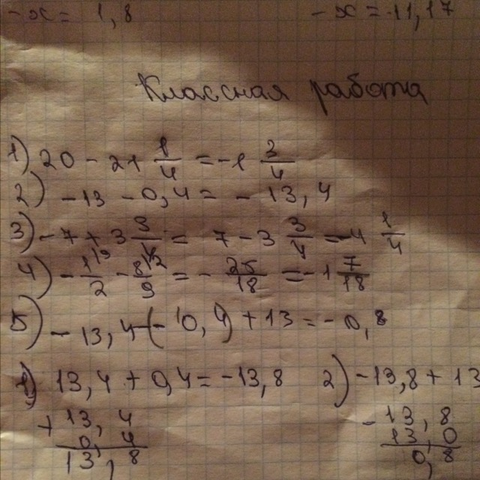 -x = 1,8 -x = -11,17
Классная работа
1) 20 - 21 1/4 = -1 3/4
2) -13 - 0,4 = -13,4
3) -7 + 3 3/4 = 7 - 3 3/4 = -4 1/4
4) -1/2 - 8/9 = -25/18 = -1 7/18
5) -13,4 - (-0,4) + 13 = -0,8
1) 13,4 + 0,4 = -13,8 2) -13,8 + 13
+ 13,4 - 13,8
0,4 13,0
13,8 0,8